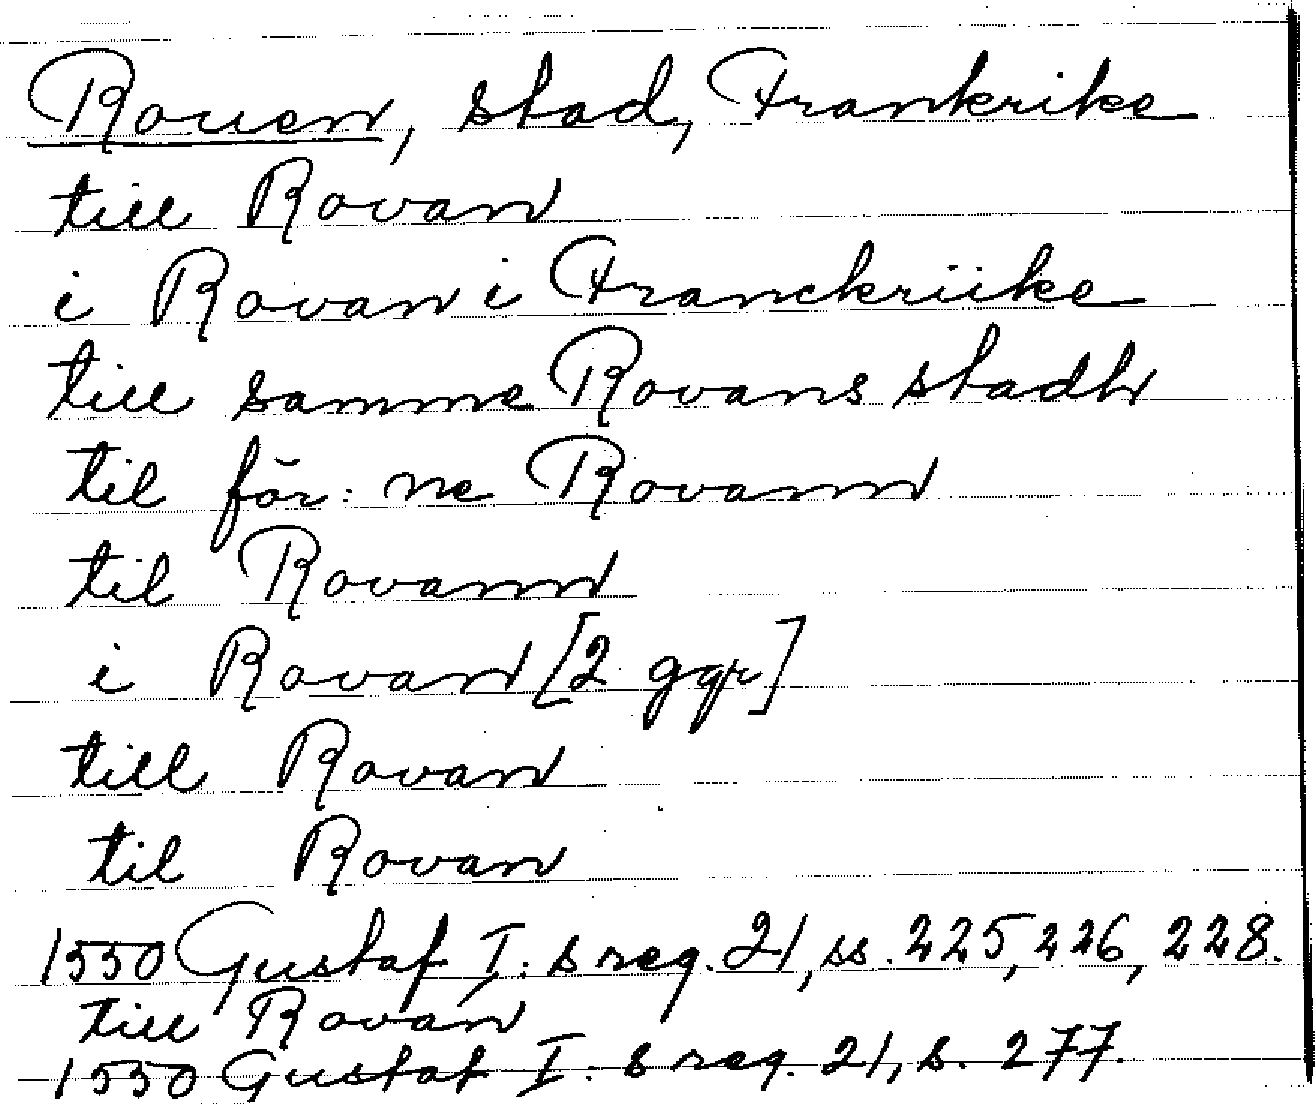 Rouen, stad, Frankrike
till Rovan
i Rovan i Franckriike
till samme Rovans stadh
til för: ne Rovann
til Rovann
i Rovan [2 ggr]
till Rovan
til Rovan
1550 Gustaf I: s reg. 21, ss. 225, 226, 228.
till Rovan
1550 Gustaf I: s reg. 21, s. 277.